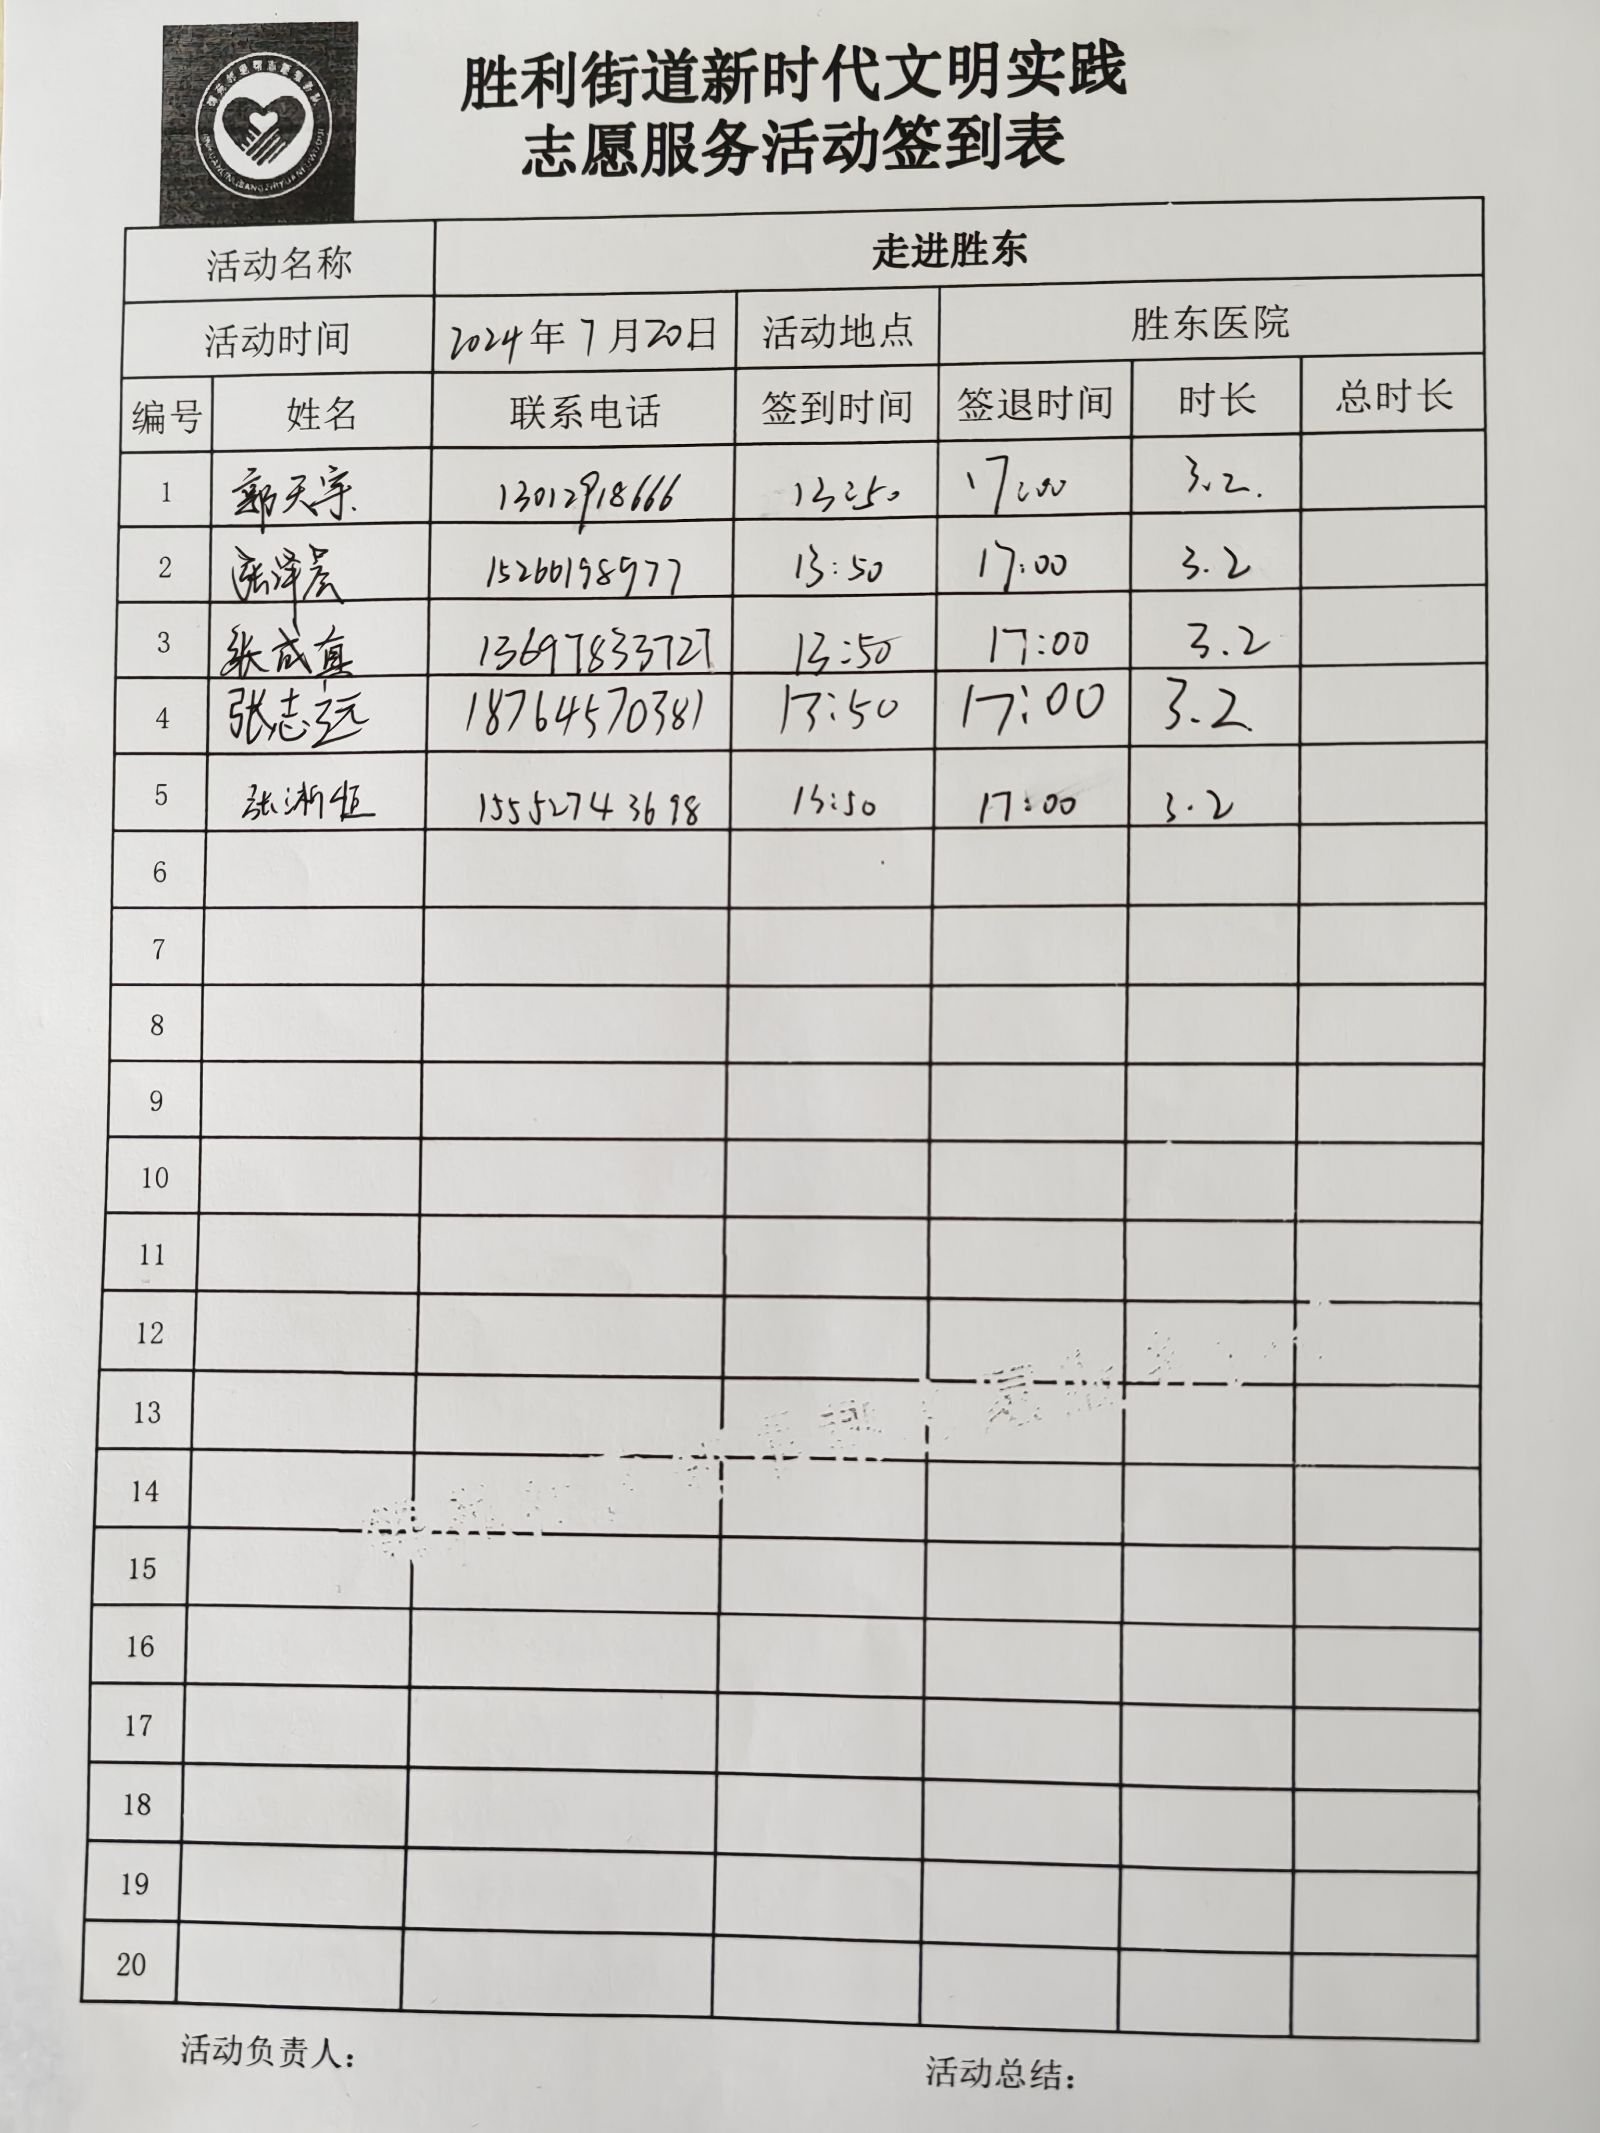 胜利街道新时代文明实践
志愿服务活动签到表
活动名称 走进胜东
活动时间 2024年7月20日 活动地点 胜东医院
编号 姓名 联系电话 签到时间 签退时间 时长 总时长
1 郭天宇 13012918666 13:50 17:00 3.2.
2 张泽晨 15266198977 13:50 17:00 3.2
3 张成真 13697833727 13:50 17:00 3.2
4 张志远 18764570381 13:50 17:00 3.2
5 张淅恒 15552743698 13:50 17:00 3.2
6
7
8
9
10
11
12
13
14
15
16
17
18
19
20
活动负责人： 活动总结：